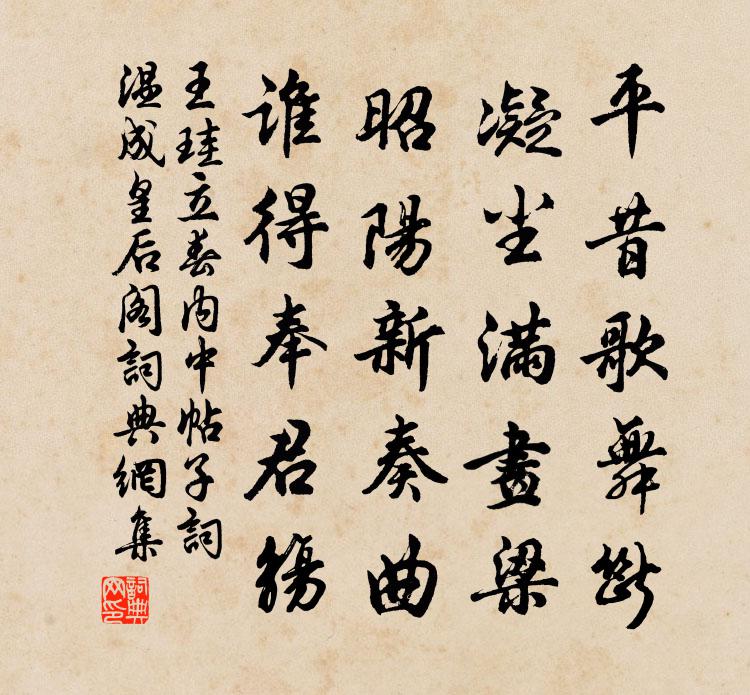 平昔歌舞斷
凝尘滿畫梁
昭陽新奏曲
誰得奉君觴
王珪立春內中帖子詞
温成皇后阁詞典網集
詞典
网印